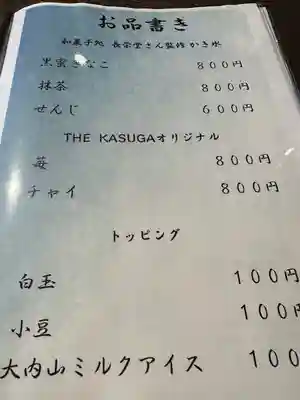 お品書き
和菓子処 長栄堂さん監修 かき氷
黒蜜きなこ 800円
抹茶 800円
せんじ 600円
THE KASUGAオリジナル
苺 800円
チャイ 800円
トッピング
白玉 100円
小豆 100円
大内山ミルクアイス 100